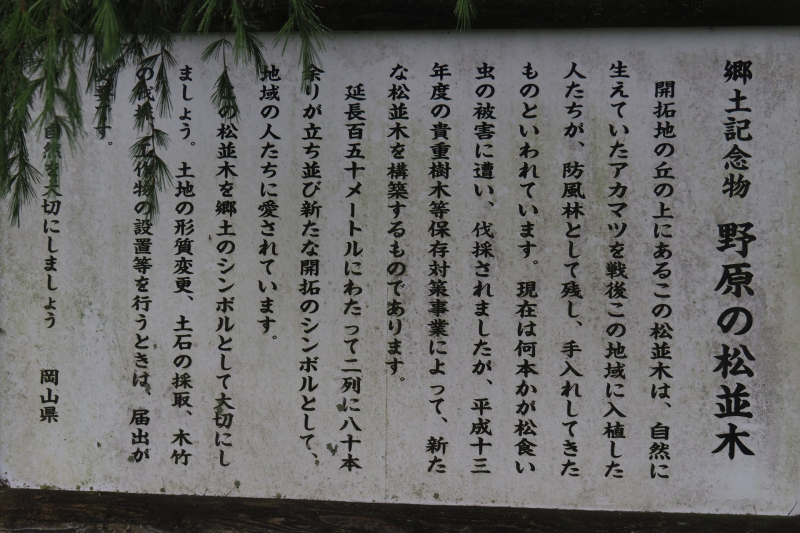 郷土記念物 野原の松並木
開拓地の丘の上にあるこの松並木は、自然に
生えていたアカマツを戦後この地域に入植した
人たちが、防風林として残し、手入れしてきた
ものといわれています。現在は何本かが松食い
虫の被害に遭い、伐採されましたが、平成十三
年度の貴重樹木等保存対策事業によって、新た
な松並木を構築するものであります。
延長百五十メートルにわたって二列に八十本
余りが立ち並び新たな開拓のシンボルとして、
地域の人たちに愛されています。
の松並木を郷土のシンボルとして大切にし
ましょう。土地の形質変更、土石の採取、木竹
の伐採、工作物の設置等を行うときは、届出が
です。
自然を大切にしましょう 岡山県